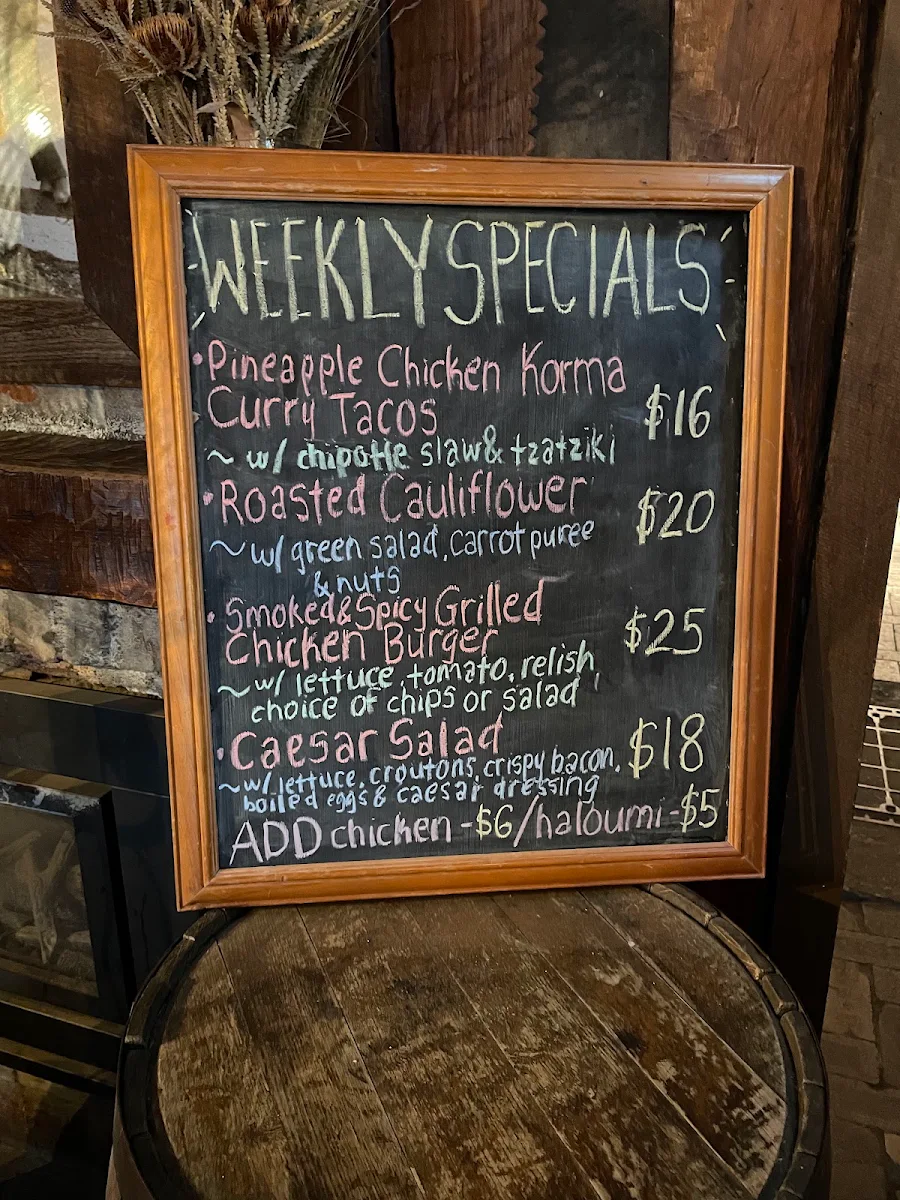 WEEKLY SPECIALS
•Pineapple Chicken Korma
Curry Tacos $16
~ w/ chipotle slaw & tzatziki
•Roasted Cauliflower $20
~w/ green salad, carrot puree
& nuts
•Smoked & Spicy Grilled
Chicken Burger $25
~w/ lettuce, tomato, relish,
choice of chips or salad
•Caesar Salad $18
~w/ lettuce, croutons, crispy bacon,
boiled eggs & caesar dressing
ADD chicken -$6/haloumi -$5